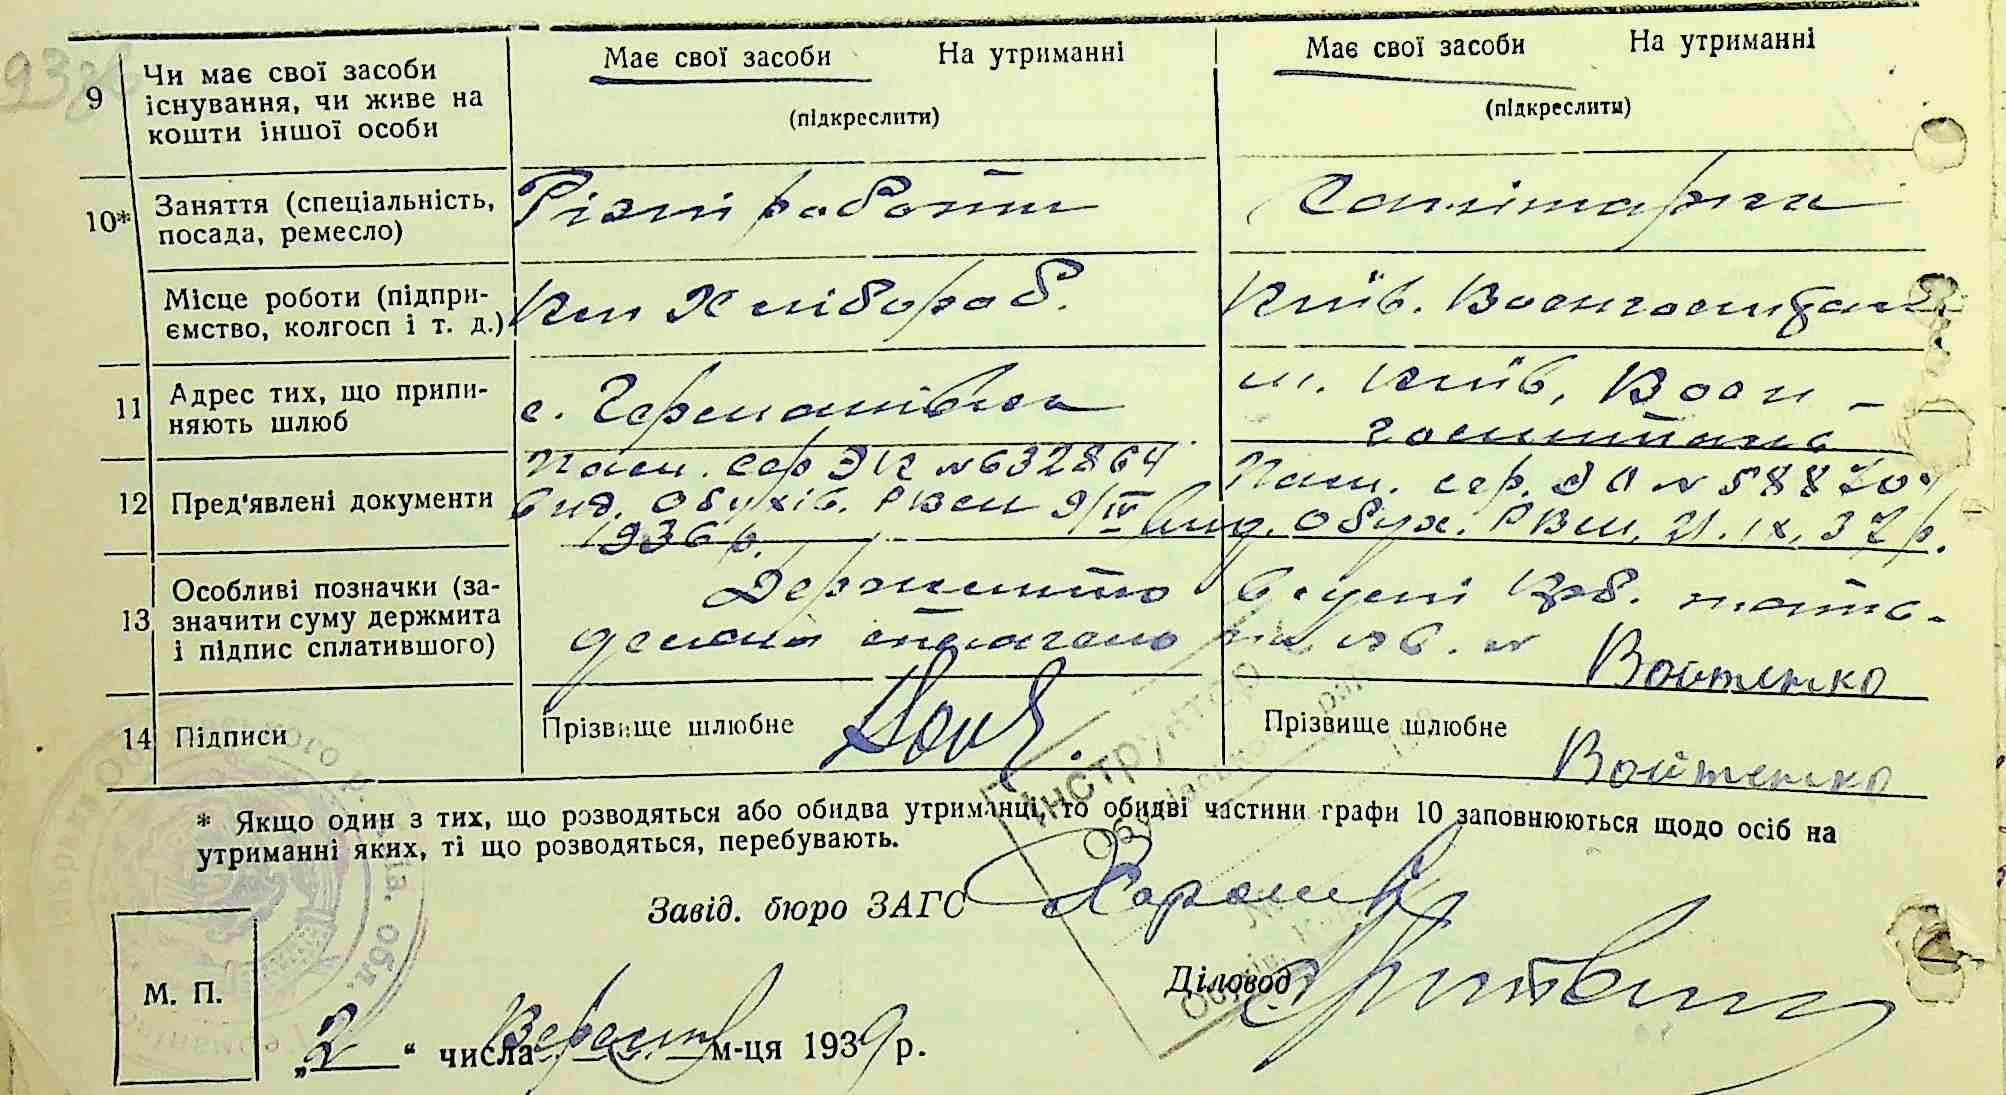 9 Чи має свої засоби існування, чи живе на кошти іншої особи
Має свої засоби На утриманні
(підкреслити)
Має свої засоби На утриманні
(підкреслити)
10* Заняття (спеціальність, посада, ремесло)
Різні работи
Санітарка
Місце роботи (підпри-
ємство, колгосп і т. д.)
Хлібороб.
Київ. Воєнгоспіталь
11 Адрес тих, що припи-
няють шлюб
с. Германівка
м. Київ, Воєн-
госпиталь
12 Пред'явлені документи
Пасп. сер ЭК № 632864
вид. Обухів. РВМ 9/IV
1936 р.
Пасп. сер. № 588704
вид. Обух. РВМ. 21.IX.37 р.
13 Особливі позначки (за-
значити суму держмита
і підпис сплатившого)
Держмито
в сумі крб.
сплачено по кв. №
Войтенко
14 Підписи
Прізвище шлюбне
Прізвище шлюбне
Войтенко
* Якщо один з тих, що розводяться або обидва утриманці, то обидві частини графи 10 заповнюються щодо осіб на
утриманні яких, ті що розводяться, перебувають.
Інструктор
Завід. бюро ЗАГС
Діловод
М. П.
„2“ числа Вересня м-ця 1939 р.